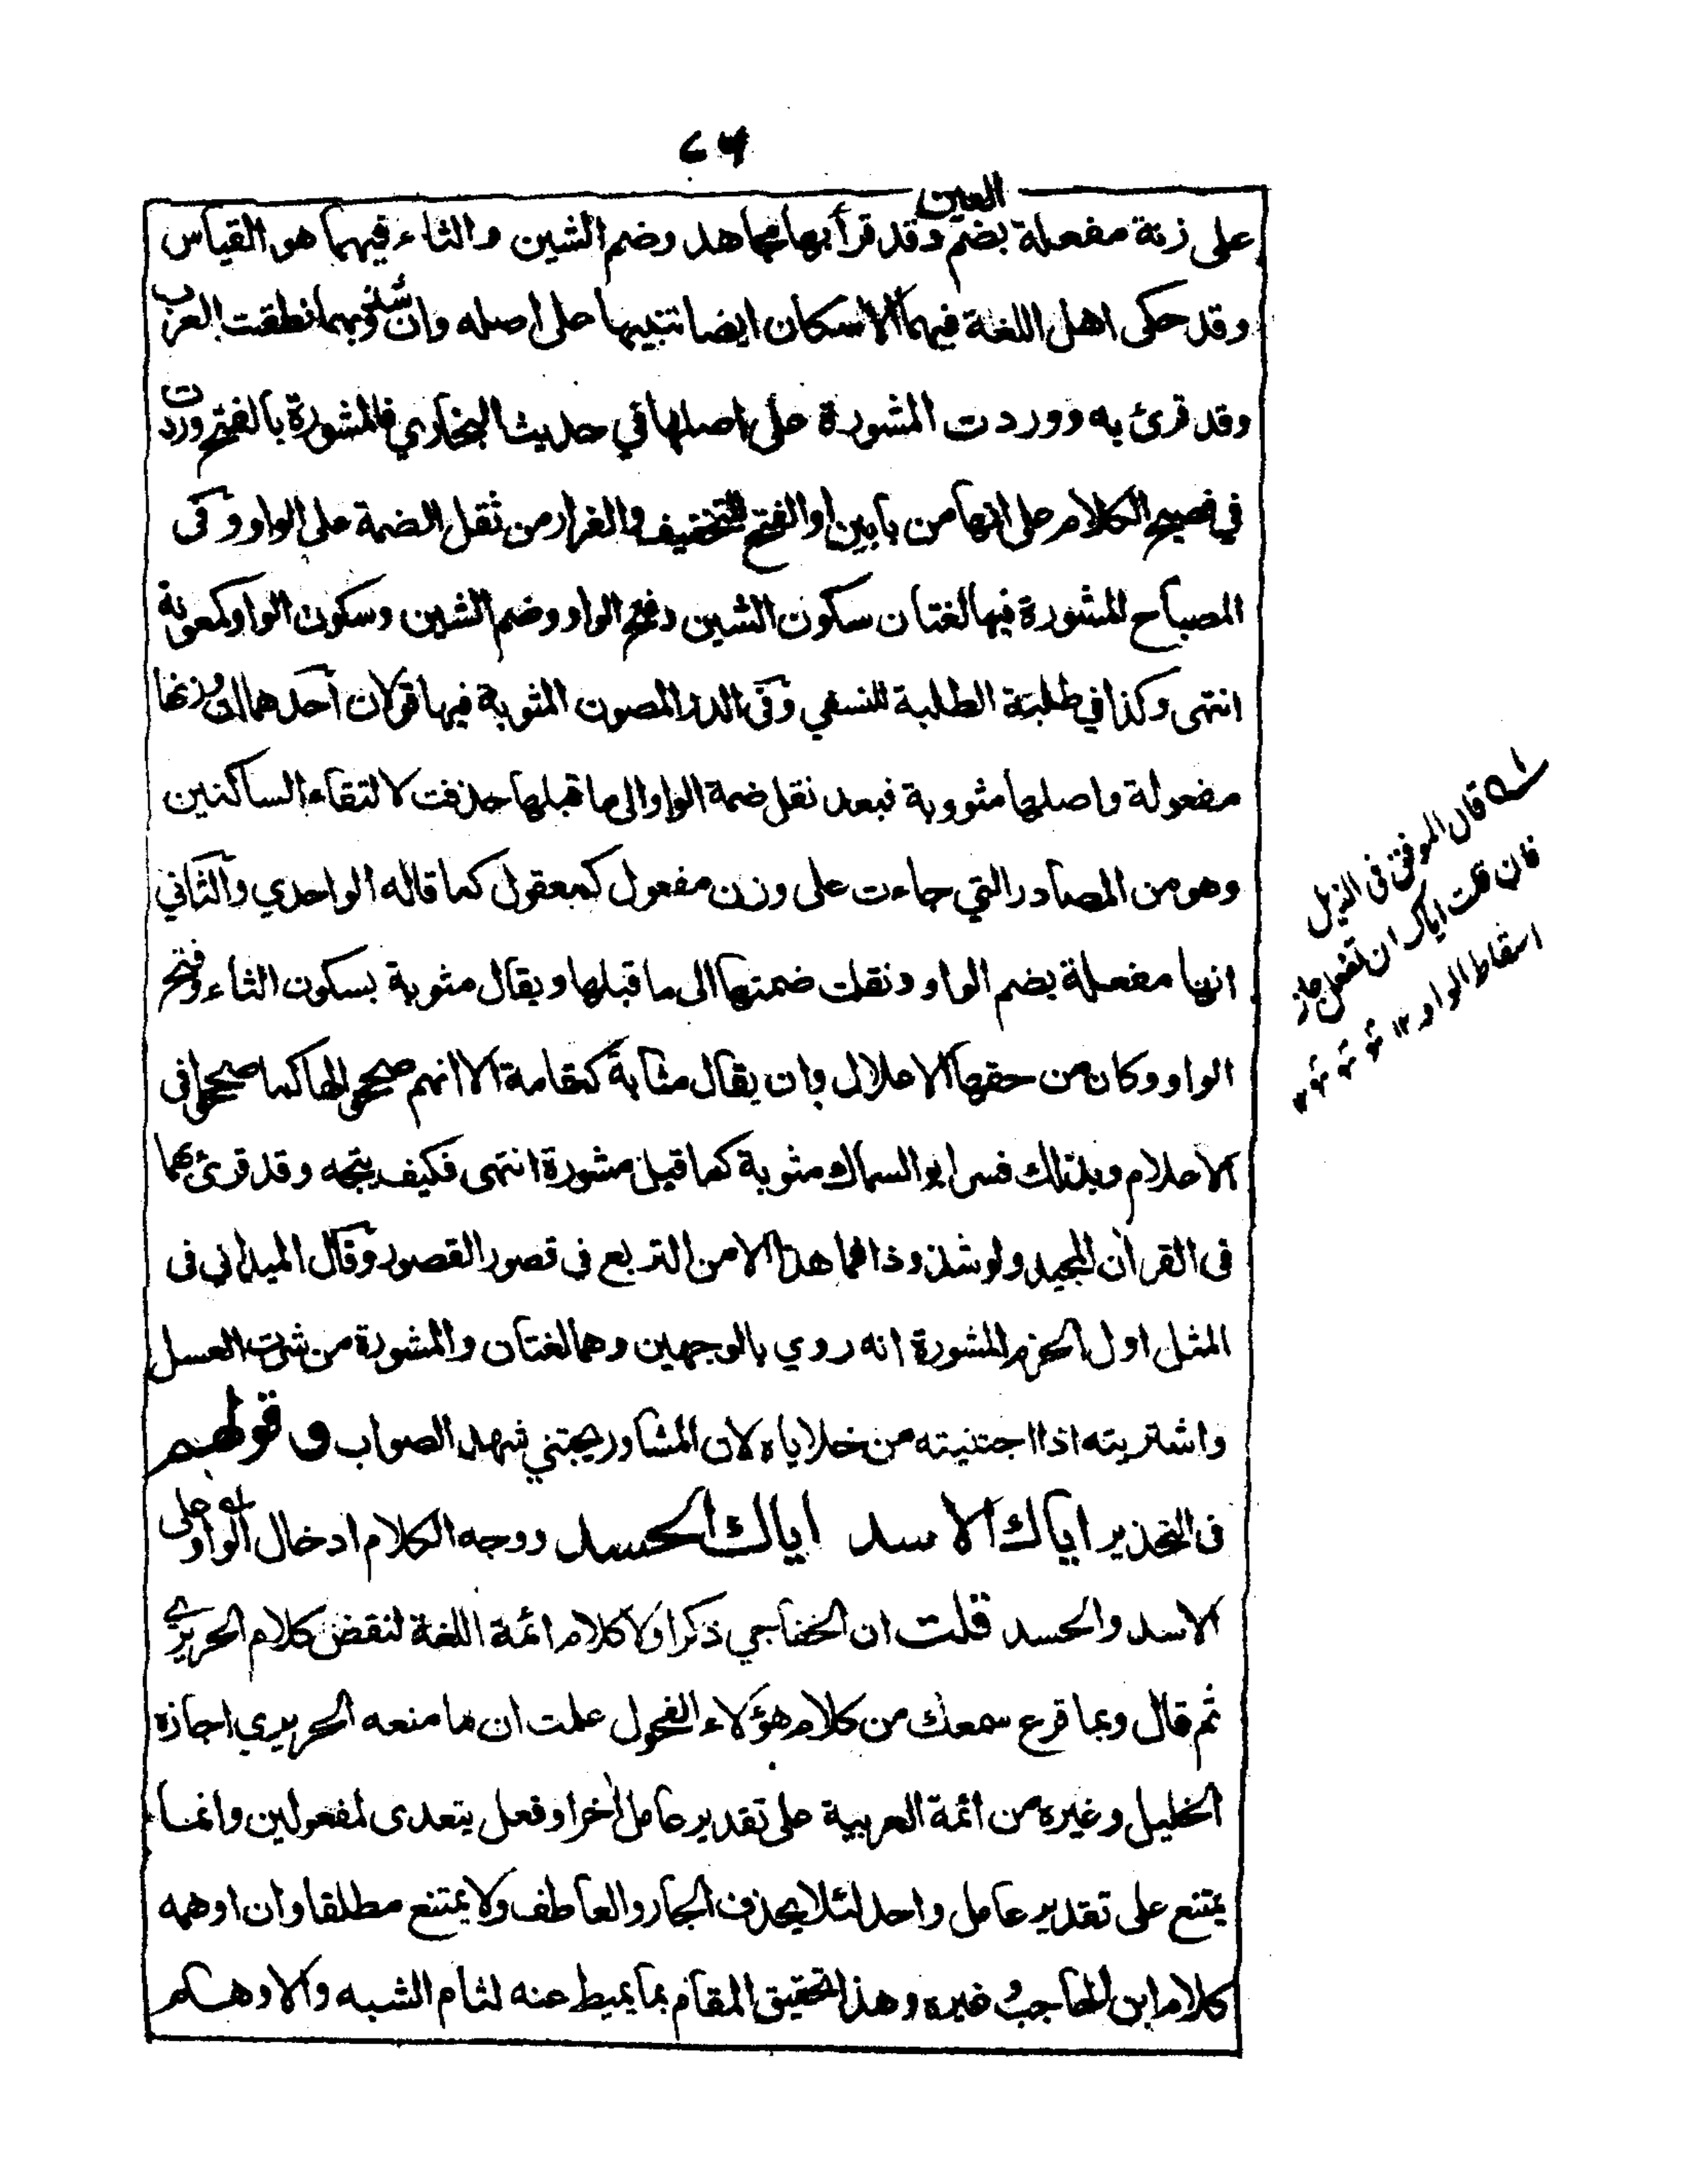 ٦٤
على زنة مفعلة بضم العين وقد قرأ بها مجاهد وضم الشين والثاء فيهما هو القياس
وقد حكى اهل اللغة فيهما الاسكان ايضا تنبيها على اصله وان شذ وبهما نطقت العرب
وقد قرئ به ووردت المشورة على اصلها في حديث البخاري فالمشورة بالفتح وردت
في فصيح الكلام على انها من بابين او الفتح للتخفيف والفرار من ثقل الضمة على الواو وفى
المصباح المشورة فيها لغتان سكون الشين وفتح الواو وضم الشين وسكون الواو كمعونة
انتهى وكذا في طلبة الطلبة للنسفي وفى الدر المصون المثوبة فيها قولان احدهما ان وزنها
مفعولة واصلها مثووبة فبعد نقل ضمة الواو الى ما قبلها حذفت لالتقاء الساكنين
وهو من المصادر التي جاءت على وزن مفعول كمعقول كما قاله الواحدي والثاني
انها مفعلة بضم الواو ونقلت ضمتها الى ما قبلها ويقال مثوبة بسكون الثاء وفتح
الواو وكان من حقها الاعلال وان يقال مثابة كمقامة الا انهم صححوها كما صححوا فى
الاعلام وبذلك فسر ابو السماك مثوبة كما قيل مشورة انتهى فكيف يتجه وقد قرئ بهما
فى القرآن المجيد ولو شذوذا فما هذا الا من التربع فى قصور القصور وقال الميداني فى
المثل اول الحزم المشورة انه روي بالوجهين وهما لغتان والمشورة من شرت العسل
واشتريته اذا اجتنيته من خلاياه لان المشاور يجتني شهد الصواب و قولهم
فى التحذير اياك الاسد اياك الحسد ووجه الكلام ادخال الواو على
الاسد والحسد قلت ان الخفاجي ذكر اولا كلام ائمة اللغة لنقض كلام الحريري
ثم قال وبما قرع سمعك من كلام هؤلاء الفحول علمت ان ما منعه الحريري اجازه
الخليل وغيره من ائمة العربية على تقدير عامل آخر او فعل يتعدى لمفعولين وانما
يمتنع على تقدير عامل واحد لئلا يحذف الجار والعاطف ولا يمتنع مطلقا وان اوهمه
كلام ابن الحاجب وغيره وهذا تحقيق المقام بما يميط عنه لثام الشبه والاوهام
قال الموفق فى الذيل
فان قلت اياك ان تفعل جاز
اسقاط الواو ١٢